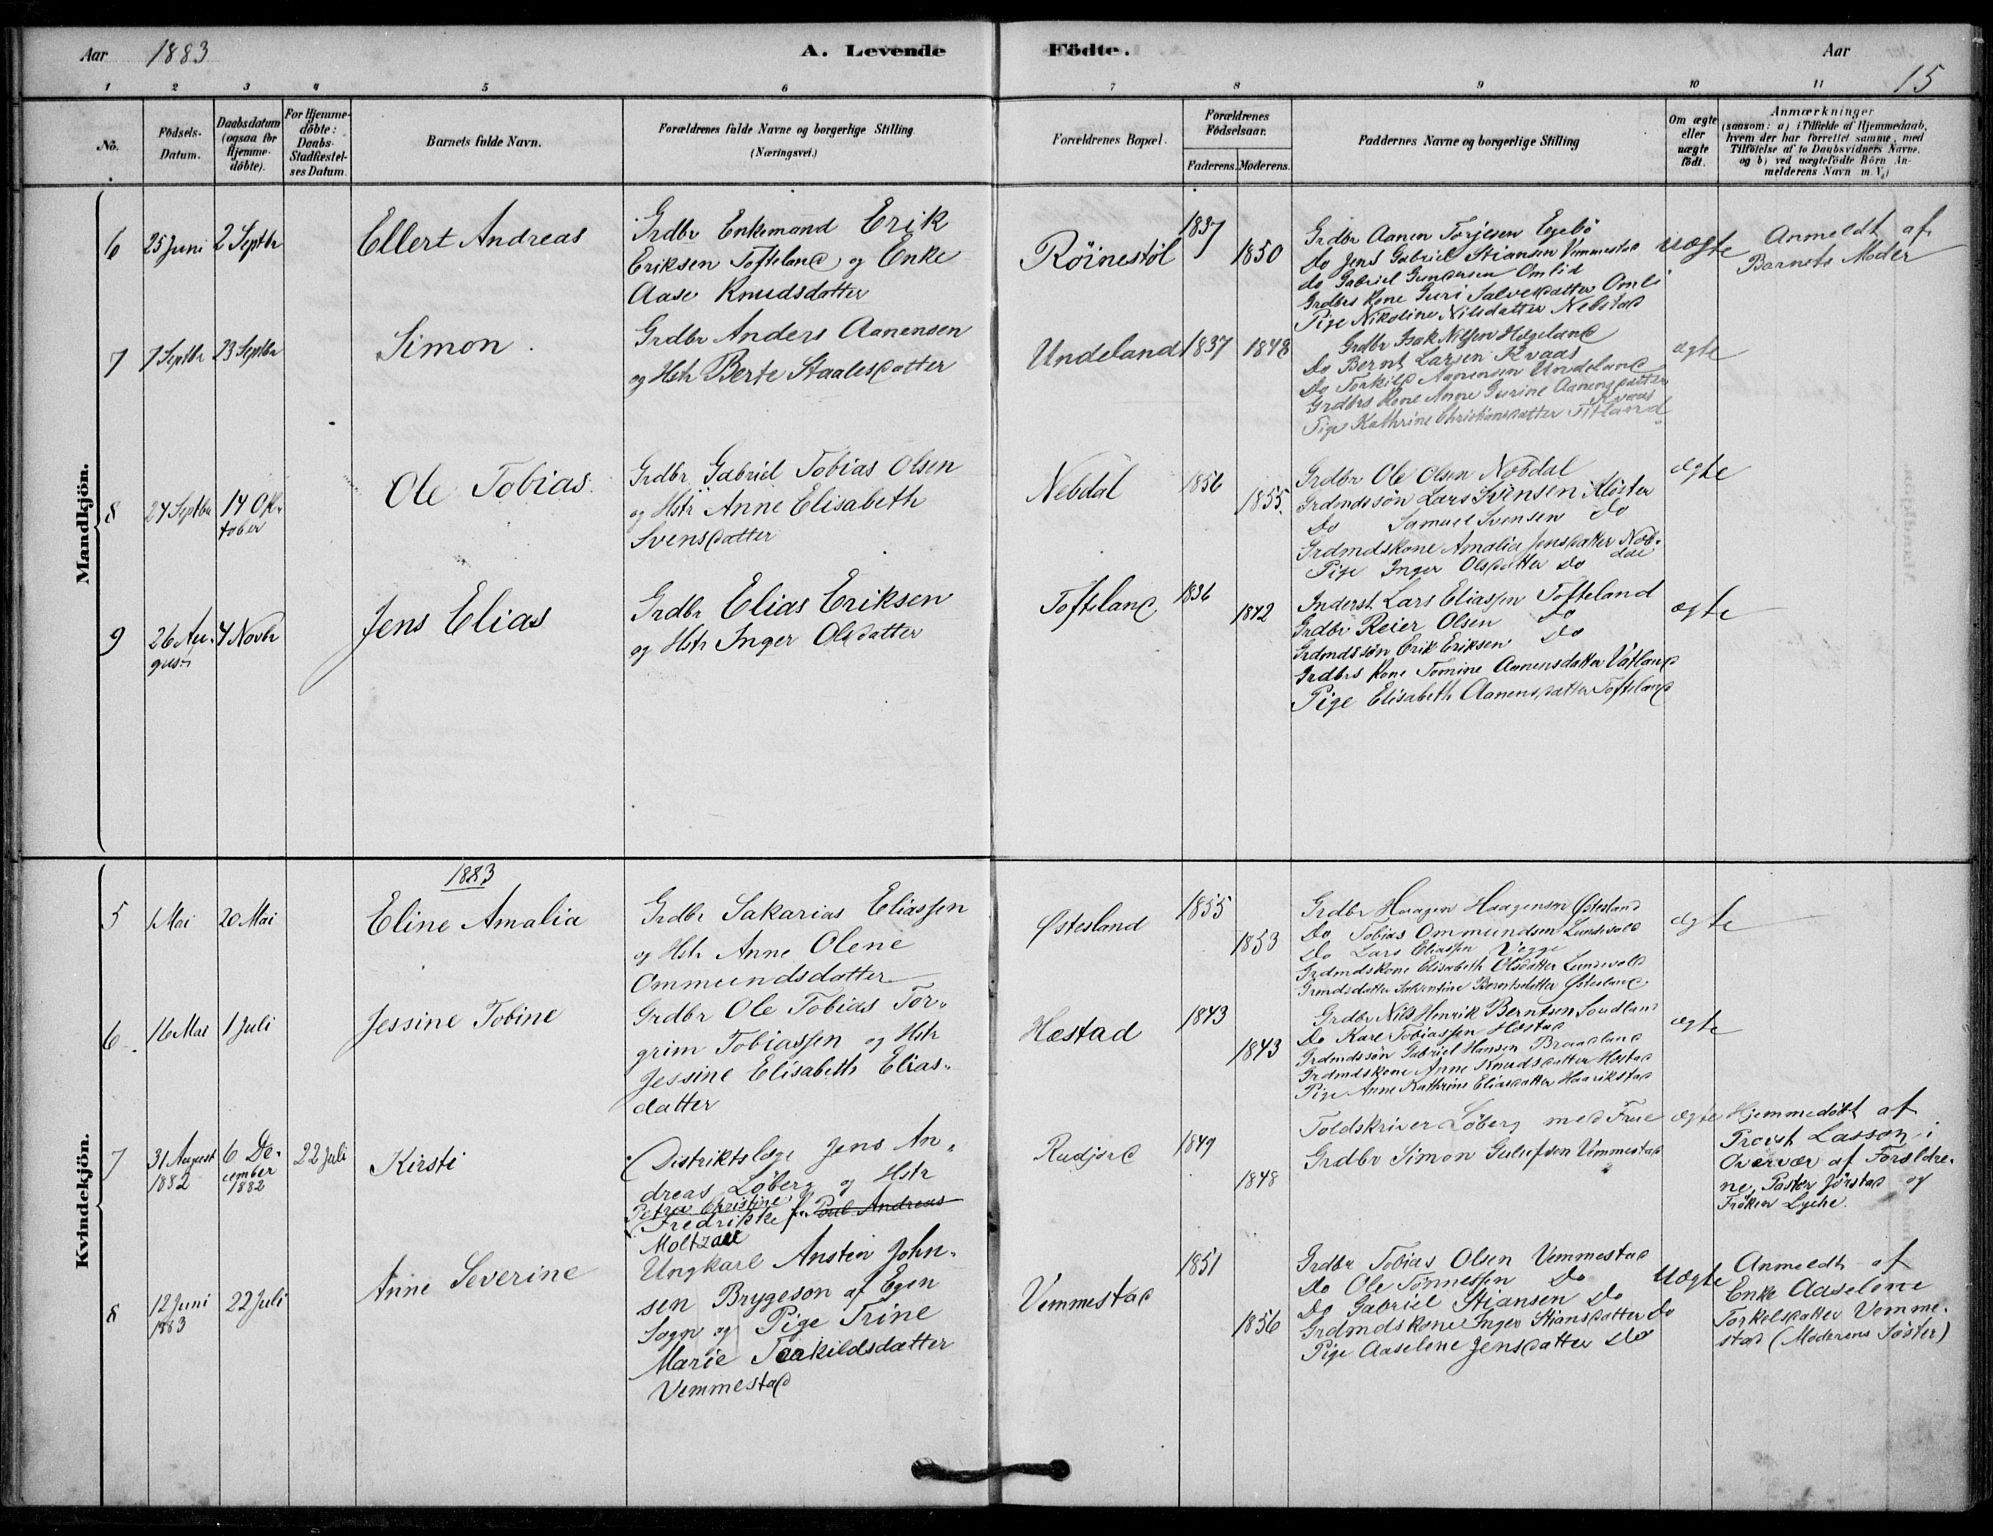 Aar 1883 A. Levende Födte. Aar
15
1 2 3 4 5 6 7 8 9 10 11
No.
Födsels-Datum.
Daabsdatum (ogsaa for Hjemme-döbte).
For Hjemme-döbte: Daabs-Stadfæstel-ses Datum.
Barnets fulde Navn.
Forældrenes fulde Navne og borgerlige Stilling
(Næringsvei.)
Forældrenes Bopæl.
Forældrenes Födselsaar.
Faderens. Moderens.
Faddernes Navne og borgerlige Stilling
Om ægte eller uægte födt.
Anmærkninger
(saasom: a) i Tilfælde af Hjemmedaab,
hvem der har forrettet samme, med
Tilföielse af to Daabsvidners Navne,
og b) ved uægtefödte Börn An-
melderens Navn m. V.)
Mandkjön.
6 25 Juni 2 Septbr Ellert Andreas
Grdbr Enkemand Erik
Eriksen Tofteland og Enke
Aase Knudsdatter
Röinestöl 1837 1850
Grdbr Aanen Torjesen Egebö
Do Jens Gabriel Stiansen Vemmestad
do Gabriel Gundersen Omlid
Grdbrs Kone Guri Salvesdatter Omli
Pige Nikoline Nilsdatter Nebstad
uægte
Anmeldt af
Barnets Moder
7 7 Septbr 23 Septbr Simon.
Grdbr Anders Aanensen
og Hstr Berte Staalesdatter
Undeland 1837 1848
Grdbr Isak Nilsen Hægeland
Do Bernt Larsen Kvaas
Do Torkild Aanensen Undeland
Grdbrs Kone Anne Gurine Aanensdatter
Kvaas
Pige Kathrine Christiansdatter Titland
ægte
8 24 Septbr 14 Ok-
tober
Ole Tobias.
Grdbr Gabriel Tobias Olsen
og Hstr Anne Elisabeth
Svensdatter
Nebdal 1856 1855.
Grdbr Ole Olsen Nebdal
Grdmdssön Lars Svensen Klöster
Do Samuel Svensen do
Grdmdskone Amalia Jensdatter Neb-
dal
Pige Inger Olsdatter do
ægte
9 26 Au-
gust
4 Novbr Jens Elias
Grdbr Elias Eriksen
og Hstr Inger Olsdatter
Tofteland 1836 1842
Inderst Lars Eliassen Tofteland
Grdbr Reier Olsen Do
Grdmdssön Erik Eriksen Do
Grdbrs Kone Tomine Aanensdatter Vatland
Pige Elisabeth Aanensdatter Tofteland
ægte
Kvindekjön.
1883
5 1 Mai 20 Mai Eline Amalia
Grdbr Sakarias Eliassen
og Hstr Anne Olene
Ommundsdatter
Östesland 1855 1853
Grdbr Haagen Haagensen Östesland
Do Tobias Ommundsen Lundevold
Do Lars Eliassen Vegge
Grdmdskone Elisabeth Olsdatter Lundevold
Grmdsdatter Salentine Berntsdatter Östesland
ægte
6 16 Mai 1 Juli Jessine Tobine
Grdbr Ole Tobias Tor-
grim Tobiassen og Hstr
Jessine Elisabeth Elias-
datter
Hæstad 1843 1843
Grdbr Nils Henrik Berntsen Sandland
Do Karl Tobiassen Hæstad
Grdmdssön Gabriel Hansen Braadland
Grdmdskone Anne Knudsdatter Hæstad
Pige Anne Kathrine Eliasdatter Haarikstad
ægte
7 31 August
1882
6 De-
cember
1882
22 Juli Kirsti
Distriktslæge Jens An-
dreas Löberg og Hstr
Petra Christine
Fredrikke f. Poul Andreas
Moltzau
Rudjord 1849 1848
Toldskriver Löberg med Frue
Grdbr Simon Gulufsen Vemmestad
ægte
Hjemmedöbt af
Provst Lassen i
Overvær af Forældre-
ne, Pastor Jörstad og
Fröken Lyche.
8 12 Juni
1883
22 Juli Anne Severine
Ungkarl Ansten John-
sen Brygeson af Egen
Sogn og Pige Trine
Marie Torkildsdatter
Vemmestad
Vemmestad 1851 1856
Grdbr Tobias Olsen Vemmestad
Do Ole Tönnessen Do
Do Gabriel Stiansen Do
Grdmdskone Inger Stiansdatter Do
Pige Aaselene Jensdatter Do
Uægte
Anmeldt af
Enke Aaselene
Torkelsdatter Vemme-
stad (Moderens Söster)